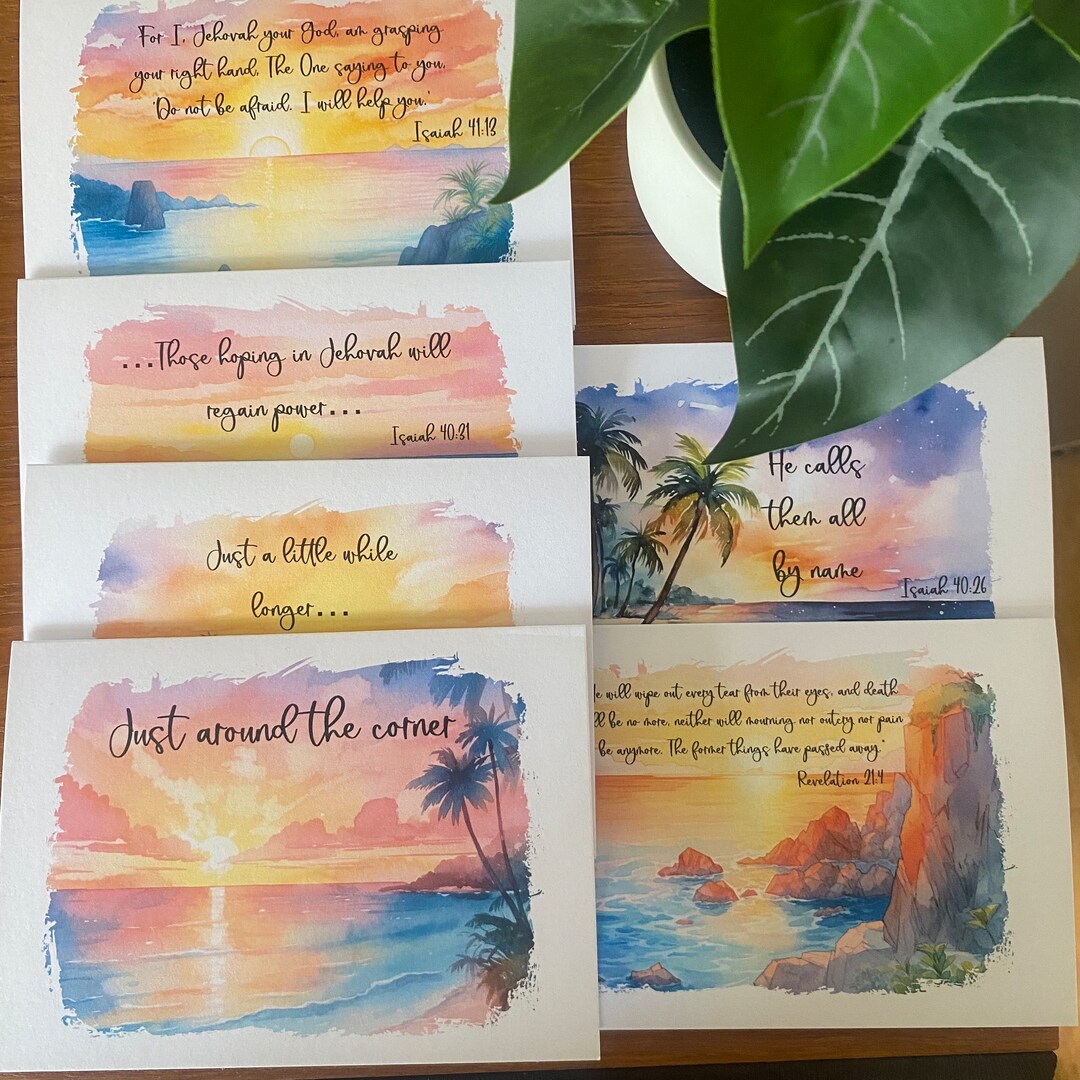 For I, Jehovah your God, am grasping
your right hand, The One saying to you,
'Do not be afraid. I will help you.'
Isaiah 41:13
...Those hoping in Jehovah will
regain power...
Isaiah 40:31
Just a little while
longer...
Just around the corner
He calls
them all
by name
Isaiah 40:26
will wipe out every tear from their eyes, and death
be no more, neither will mourning nor outcry nor pain
be anymore. The former things have passed away."
Revelation 21:4